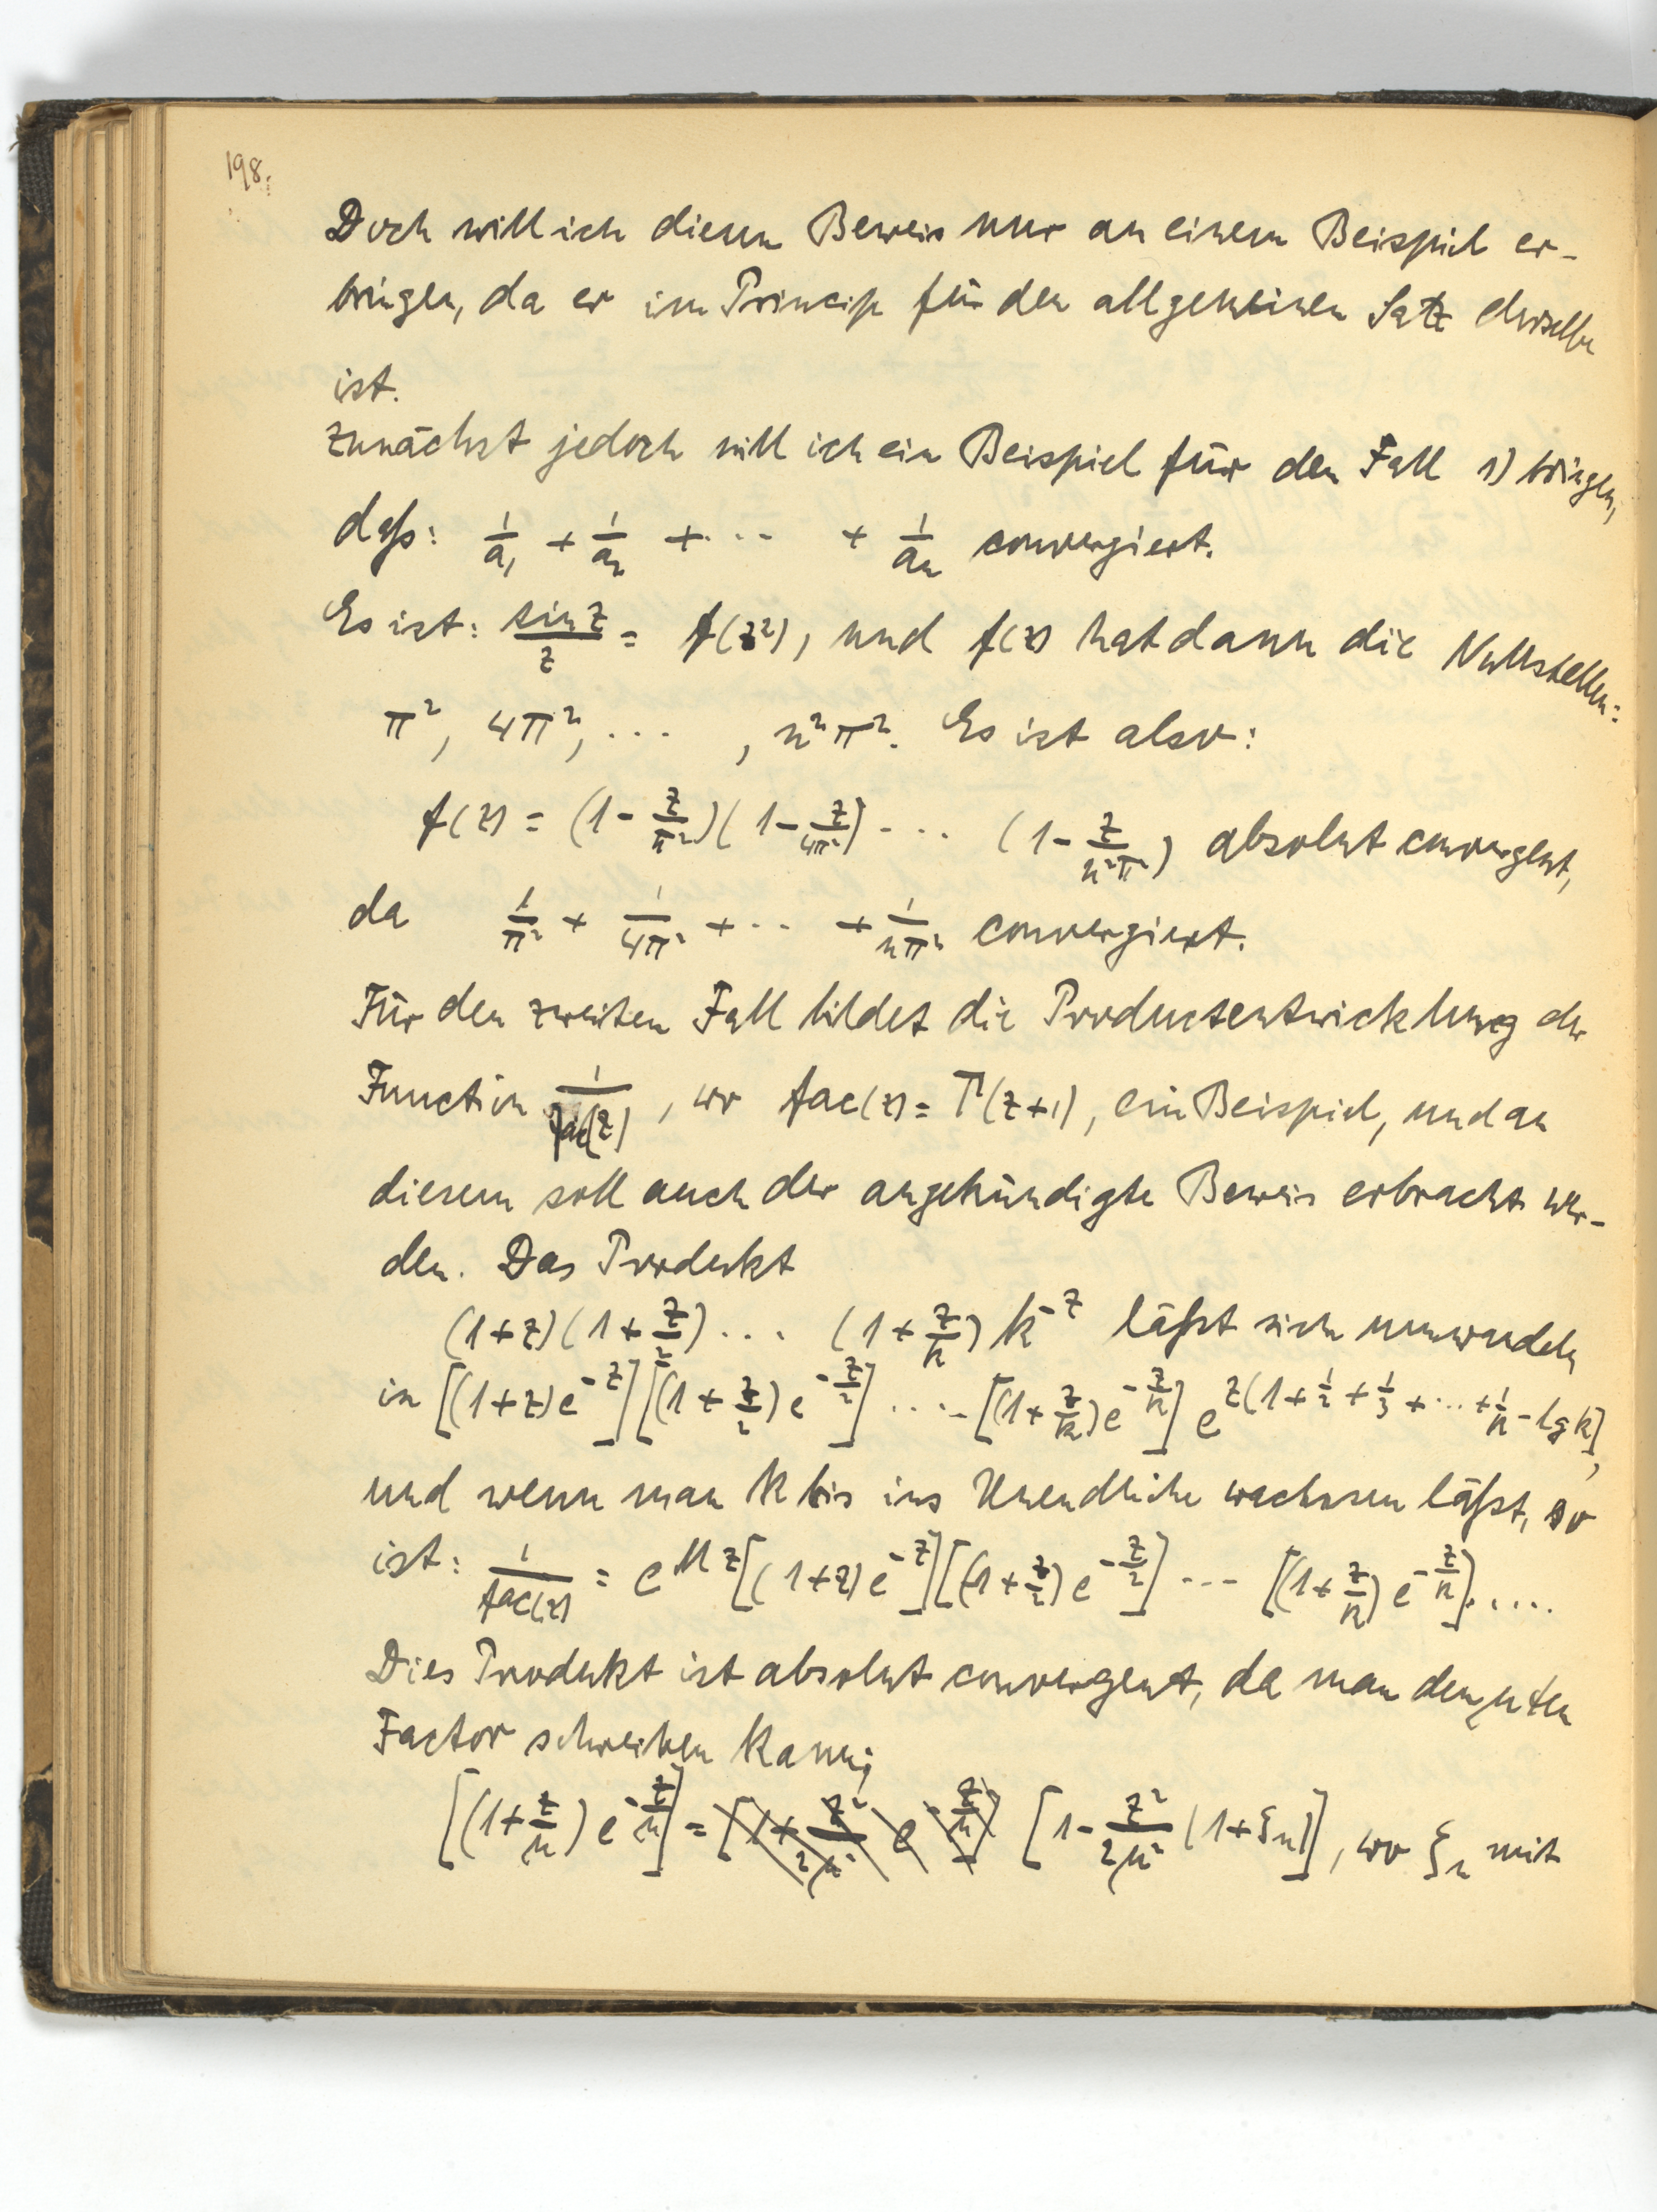 198.
Doch will ich diesen Beweis nur an einem Beispiel er-
bringen, da er im Princip für den allgemeinen Satz derselbe
ist.
Zunächst jedoch will ich ein Beispiel für den Fall 1) bringen,
daß: 1/a₁ + 1/a₂ + ... + 1/aₙ convergiert.
Es ist: sin z/z = f(z²), und f(z) hat dann die Nullstellen:
π², 4π², ... , n²π². Es ist also:
f(z) = (1 - z/π²)(1 - z/4π²) ... (1 - z/n²π²) absolut convergent,
da 1/π² + 1/4π² + ... + 1/nπ² convergiert.
Für den zweiten Fall bildet die Productentwicklung der
Function 1/fac(z), wo fac(z) = Γ(z+1), ein Beispiel, und an
diesem soll auch der angekündigte Beweis erbracht wer-
den. Das Produkt
(1+z)(1+z/2) ... (1+z/k) k^-z läßt sich umwandeln
in [(1+z)e^-z][(1+z/2)e^-z/2] ..... [(1+z/k)e^-z/k] e^z(1+1/2+1/3+...+1/k-lg k],
und wenn man k bis ins Unendliche wachsen läßt, so
ist: 1/fac(z) = e^Mz[(1+z)e^-z][(1+z/2)e^-z/2] --- [(1+z/k)e^-z/k].....
Dies Produkt ist absolut convergent, da man den nten
Factor schreiben kann;
[(1+z/n)e^-z/n] = [1+z²/2n² e^-z/n] [1-z²/2n²(1+ξn)], wo ξₙ mit